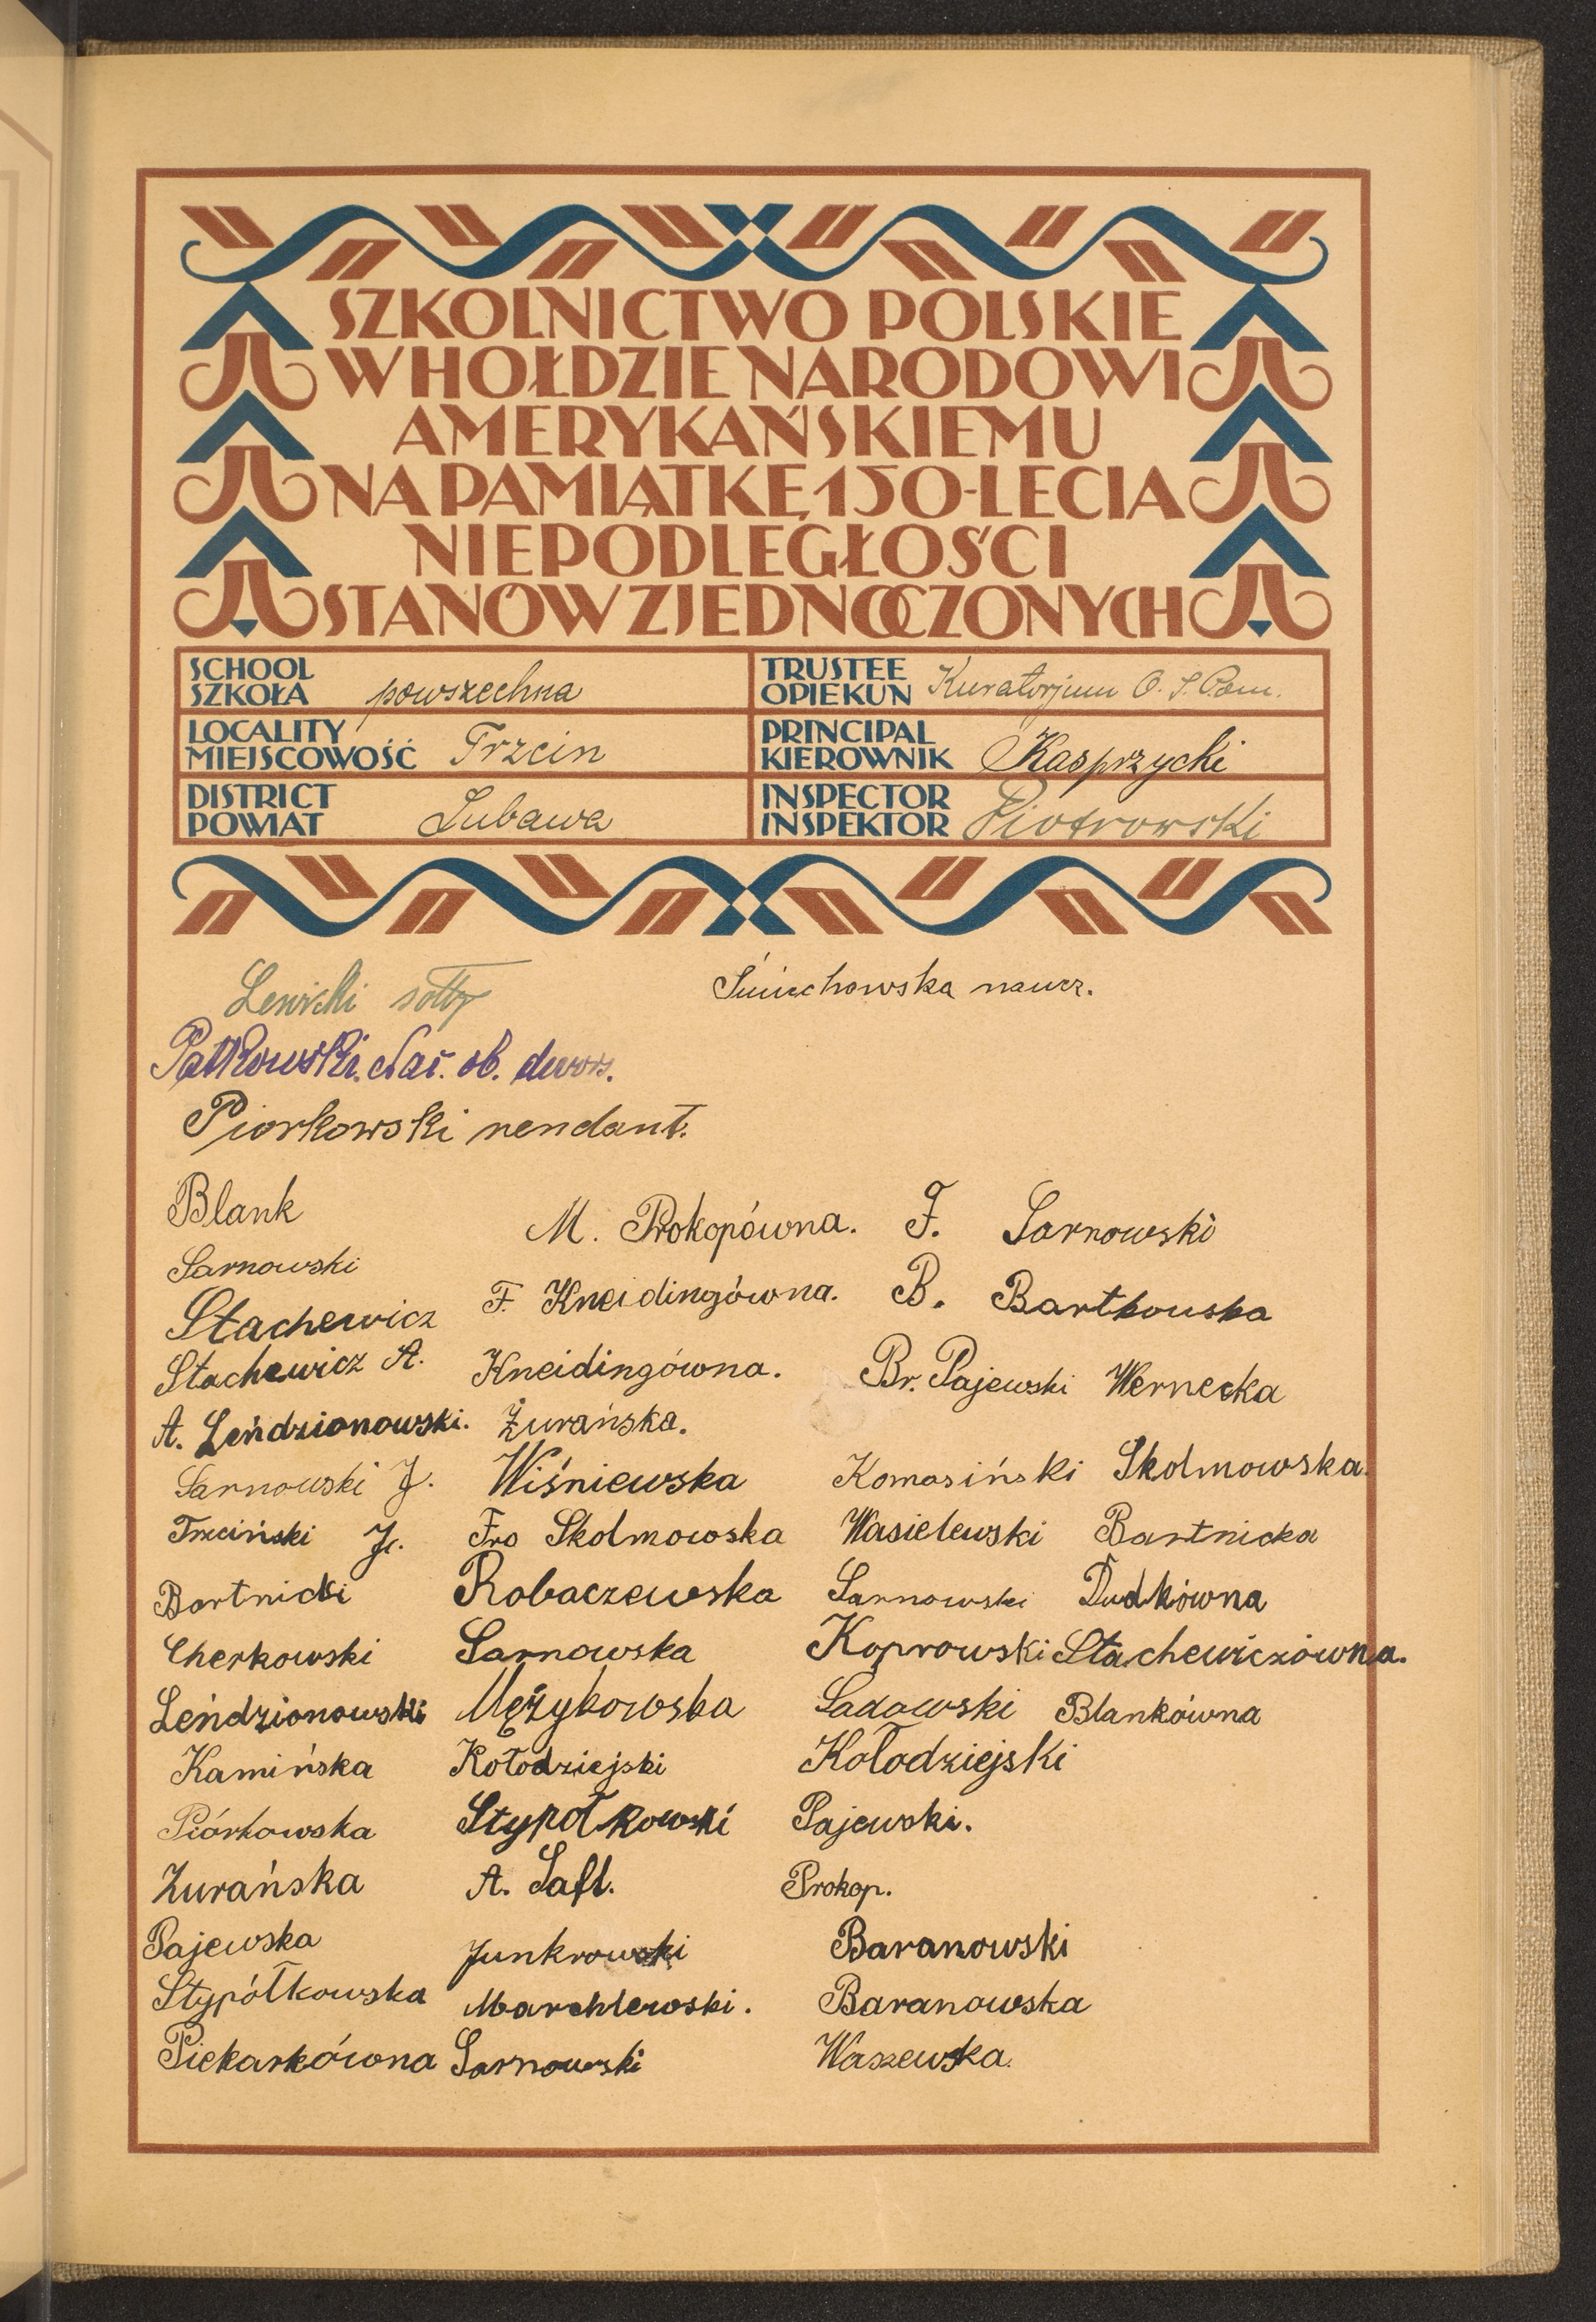 SZKOLNICTWO POLSKIE
W HOŁDZIE NARODOWI
AMERYKAŃSKIEMU
NA PAMIĄTKĘ 150-LECIA
NIEPODLEGŁOŚCI
STANÓW ZJEDNOCZONYCH
SCHOOL
SZKOŁA powszechna
TRUSTEE
OPIEKUN Kuratorjum O. S. Pom.
LOCALITY
MIEJSCOWOŚĆ Trzcin
PRINCIPAL
KIEROWNIK Kasprzycki
DISTRICT
POWIAT Lubawa
INSPECTOR
INSPEKTOR Piotrowski
Lewicki sołtys
Śmiechowska naucz.
Patkowski. ob. dwors.
Piorkowski rendant.
Blank
Sarnowski
Stachewicz
Stachewicz A.
A. Leńdzionowski.
Sarnowski J.
Trzciński J.
Bartnicki
Cherkowski
Leńdzionowski
Kamińska
Piórkowska
Żurańska
Pajewska
Stypółkowska
Piekarkówna
M. Prokopówna.
F. Kneidingówna.
Kneidingówna.
Żurańska.
Wiśniewska
Fra Skolmowska
Robaczewska
Sarnowska
Mężykowska
Kołodziejski
Stypołkowski
A. Safl.
Junkrowski
Marchlewski.
Sarnowski
F. Sarnowski
B. Bartkowska
Br. Pajewski Wernecka
Komosiński Skolmowska.
Wasielewski Bartnicka
Sarnowski Dudkówna
Koprowski Stachewiczówna.
Sadowski Blankówna
Kołodziejski
Pajewski.
Prokop.
Baranowski
Baranowska
Waszewska.